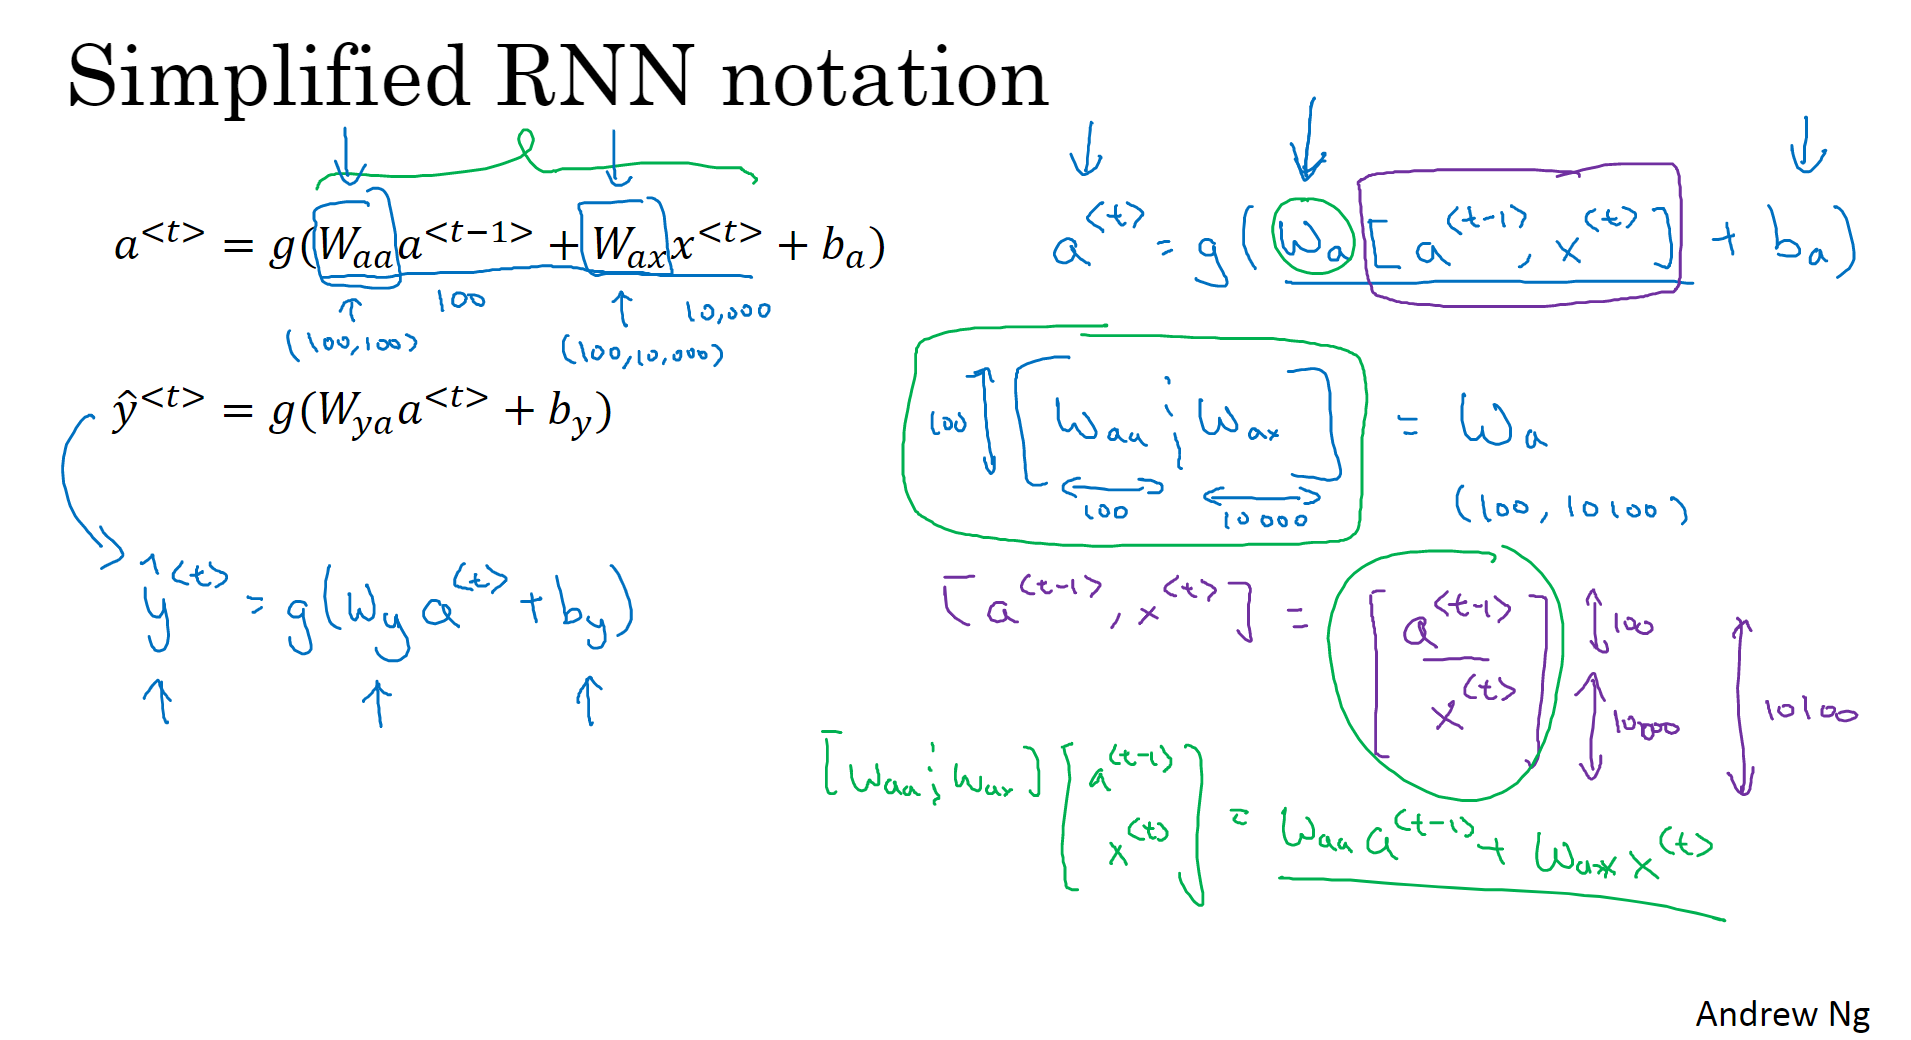 Simplified RNN notation
a<t> = g(Waa a<t−1> + Wax x<t> + ba)
100
10,000
(100,100)
(100,10,000)
ŷ<t> = g(Wya a<t> + by)
ŷ<t> = g(Wy a<t> + by)
a<t> = g(Wa [a<t-1>, x<t>] + ba)
100 [Waa ¦ Wax] = Wa
100 10000 (100, 10100)
[a<t-1>, x<t>] = [a<t-1> x<t>] 100 10,000 10100
[Waa ¦ Wax] [a<t-1> x<t>] = Waa a<t-1> + Wax x<t>
Andrew Ng